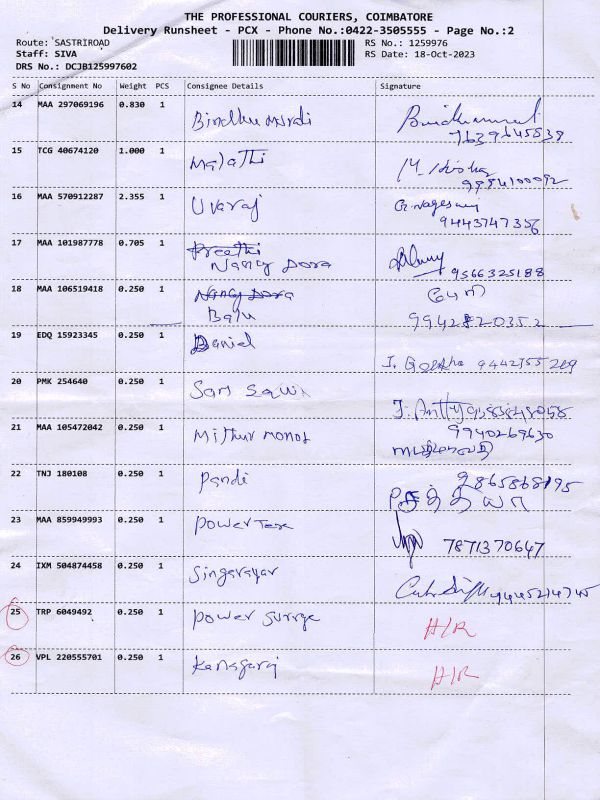 THE PROFESSIONAL COURIERS, COIMBATORE
Delivery Runsheet - PCX - Phone No.:0422-3505555 - Page No.:2
Route: SASTRIROAD
RS No.: 1259976
Staff: SIVA
RS Date: 18-Oct-2023
DRS No.: DCJB125997602
S No Consignment No Weight PCS Consignee Details Signature
14 MAA 297069196 0.830 1 Bindhu
15 TCG 40674120 1.000 1 Malathi
9994100092
16 MAA 570912287 2.355 1 Uvaraj
9443747356
17 MAA 101987778 0.705 1 Preethi
Nancy Dora
9566325188
18 MAA 106519418 0.250 1 Nancy Dora
Balu
9942820352
19 EDQ 15923345 0.250 1 Daniel
20 PMK 254640 0.250 1 Sam
21 MAA 105472042 0.250 1 Mithur
9940269630
22 TNJ 180108 0.250 1 Pandi
23 MAA 859949993 0.250 1 Power
7871370647
24 IXM 504874458 0.250 1 Singarayar
25 TRP 6049492 0.250 1 Power
H/R
26 VPL 220555701 0.250 1 Kanagaraj
H/R